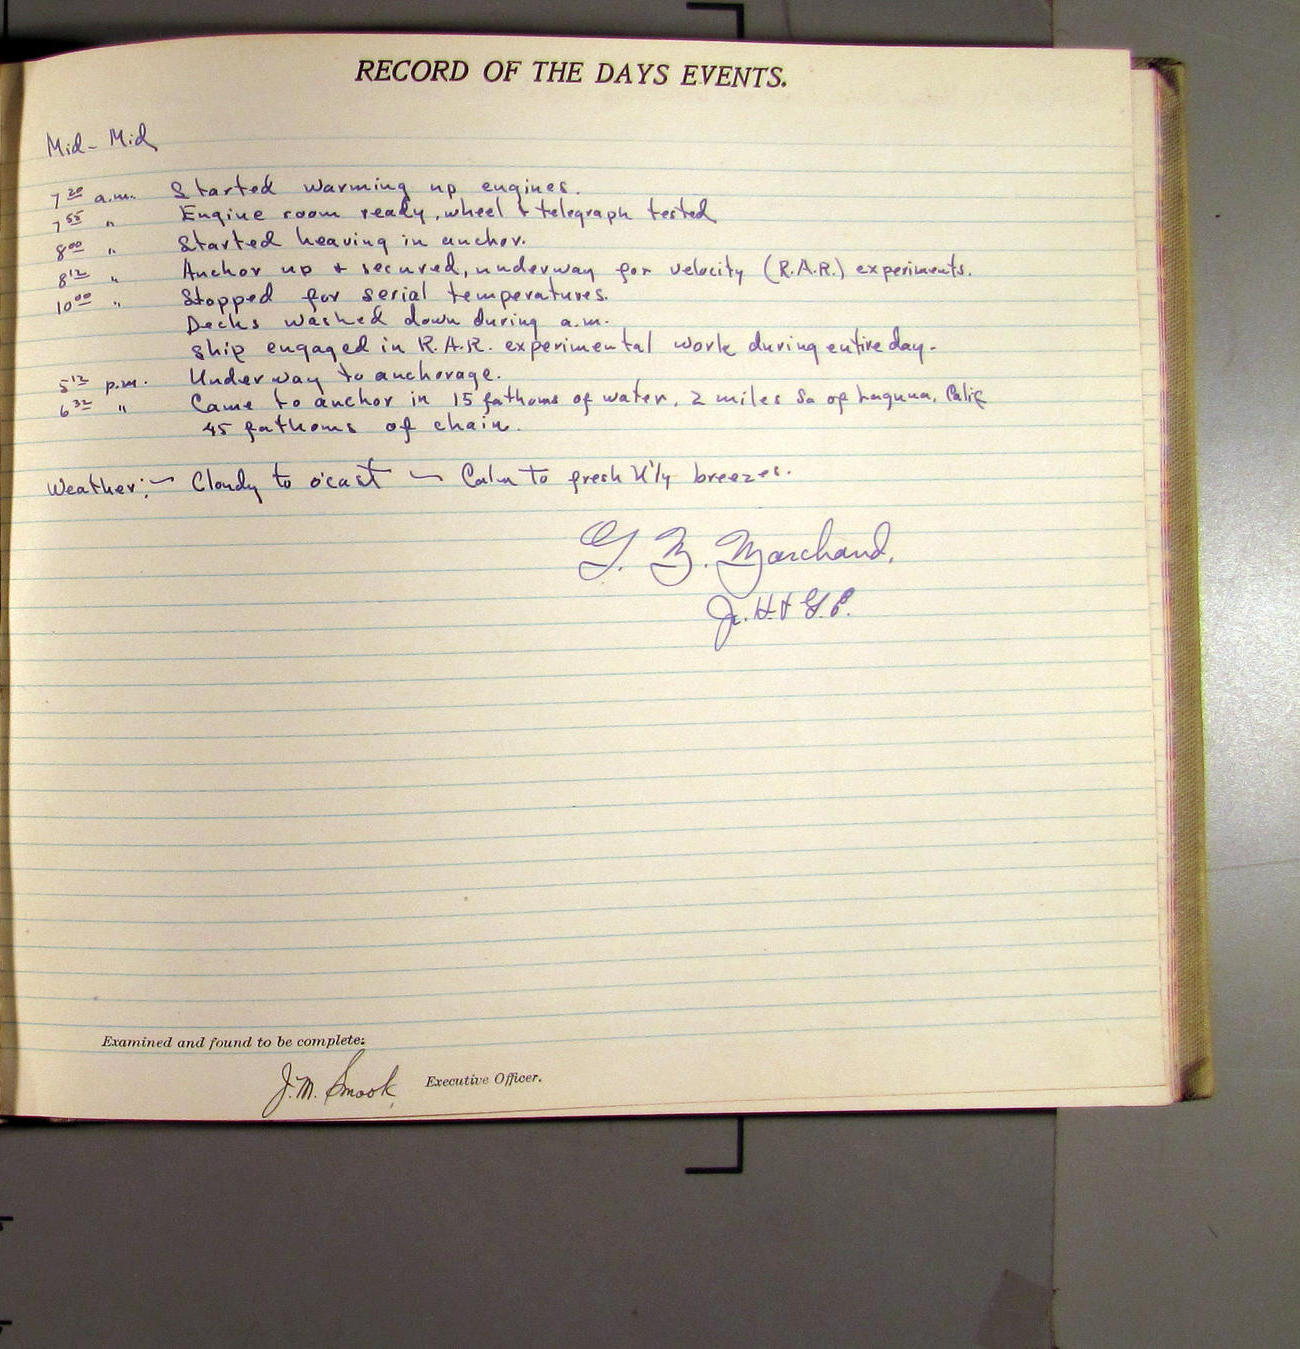 RECORD OF THE DAYS EVENTS.
Mid - Mid
7 20 a.m. Started warming up engines.
7 55 " Engine room ready, wheel & telegraph tested
8 00 " Started heaving in anchor.
8 12 " Anchor up & secured, underway for velocity (R.A.R.) experiments.
10 00 " Stopped for serial temperatures.
Decks washed down during a.m.
Ship engaged in R.A.R. experimental work during entire day.
5 12 p.m. Underway to anchorage.
6 32 " Came to anchor in 15 fathoms of water, 2 miles So of Laguna, Calif
45 fathoms of chain.
Weather: - Cloudy to o'cast - Calm to fresh breezes.
Marchand,
Jr. H. & G. E.
Examined and found to be complete:
J. M. Smook Executive Officer.